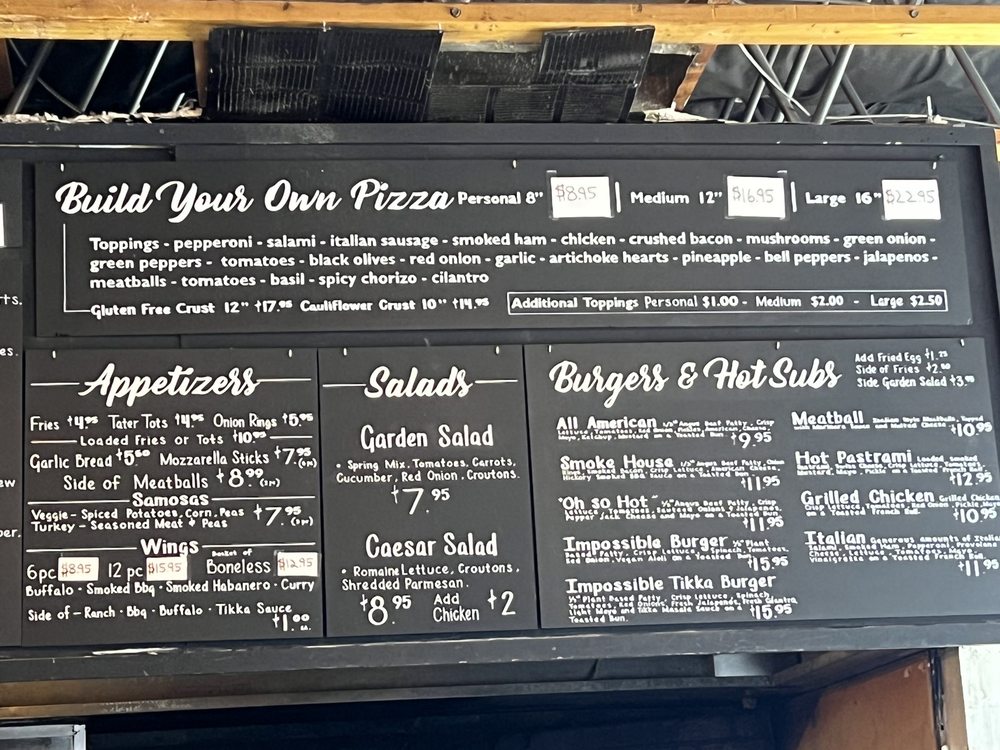 Build Your Own Pizza Personal 8" $8.95 | Medium 12" $16.95 | Large 16" $22.95
Toppings - pepperoni - salami - italian sausage - smoked ham - chicken - crushed bacon - mushrooms - green onion -
green peppers - tomatoes - black olives - red onion - garlic - artichoke hearts - pineapple - bell peppers - jalapenos -
meatballs - tomatoes - basil - spicy chorizo - cilantro
Gluten Free Crust 12" $17.95 Cauliflower Crust 10" $14.95
Additional Toppings Personal $1.00 - Medium $2.00 - Large $2.50
rts.
es.
ew
per.
Appetizers
Fries $4.95 Tater Tots $4.95 Onion Rings $5.95
Loaded Fries or Tots $10.95
Garlic Bread $5.50 Mozzarella Sticks $7.95
Side of Meatballs $8.99
Samosas
Veggie - Spiced Potatoes, Corn, Peas
Turkey - Seasoned Meat & Peas
$7.95
Wings
6pc $8.95 12 pc $15.95 Basket of Boneless $12.95
Buffalo · Smoked Bbq · Smoked Habanero · Curry
Side of - Ranch · Bbq · Buffalo · Tikka Sauce
$1.00 ea.
Salads
Garden Salad
• Spring Mix, Tomatoes, Carrots,
Cucumber, Red Onion, Croutons.
$7.95
Caesar Salad
• Romaine Lettuce, Croutons,
Shredded Parmesan.
$8.95 Add Chicken $2
Burgers & Hot Subs
Add Fried Egg $1.25
Side of Fries $2.50
Side Garden Salad
All American 1/2" Angus Beef Patty, Crisp
Lettuce, Tomatoes, Red Onion, Pickles, American Cheese,
Mayo, Ketchup, Mustard on a Toasted Bun
$9.95
Smoke House Angus Beef Patty, Onion
Rings, Smoked Bacon, Crisp Lettuce, American Cheese,
Hickory Smoked BBQ Sauce on a Toasted Bun
$11.95
"Oh so Hot" Angus Beef Patty, Crisp
Lettuce, Tomatoes, Sauteed Onions & Jalapenos,
Pepper Jack Cheese and Mayo on a Toasted Bun
$11.95
Impossible Burger Plant
Based Patty, Crisp Lettuce, Spinach, Tomatoes,
Red Onion, Vegan Aioli on a Toasted Bun
$15.95
Impossible Tikka Burger
Plant Based Patty, Crisp Lettuce, Spinach,
Tomatoes, Red Onions, Fresh Jalapenos, Fresh Cilantro,
Light Mayo and Tikka Masala Sauce on a
Toasted Bun.
$15.95
Meatball Italian Style Meatballs, Topped
with Marinara Sauce and Melted Cheese
$10.95
Hot Pastrami Loaded Smoked
Pastrami, Swiss Cheese, Crisp Lettuce, Tomatoes,
Mustard, Mayo, Pickle on a Toasted French
$12.95
Grilled Chicken Grilled Chicken
Crisp Lettuce, Tomatoes, Red Onion, Pickle, Mayo
on a Toasted French Roll
$10.95
Italian Generous amounts of Italian
Salami, Smoked Ham, Provolone
Cheese, Lettuce, Tomato, Mayo,
Vinaigrette on a Toasted French
$11.95